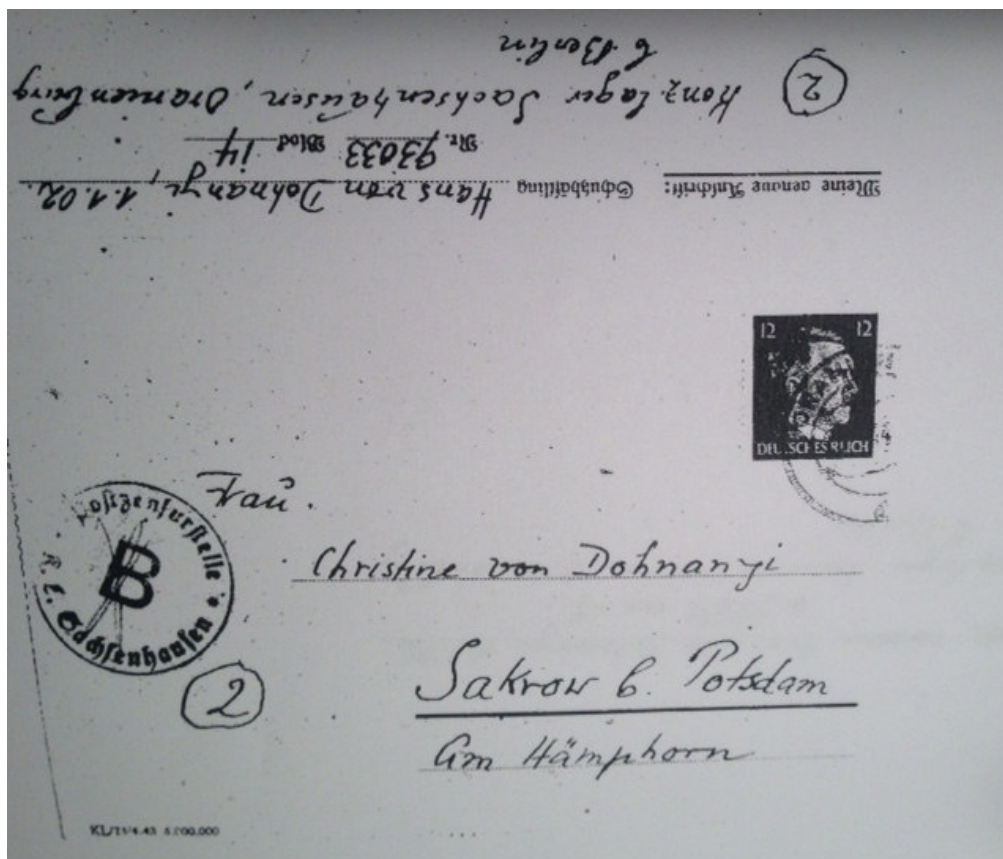 Meine genaue Anschrift:
Schutzhäftling
Hans von Dohnanyi, 1.1.02.
Nr. 93033 Block 14
Konz. Lager Sachsenhausen, Oranienburg
b. Berlin
2
12 12
DEUTSCHES REICH
Frau
Postzensurstelle
B
K. L. Sachsenhausen
Christine von Dohnanyi
Sakrow b. Potsdam
Am Hämphorn
2
KL/71/4.43 5.000.000